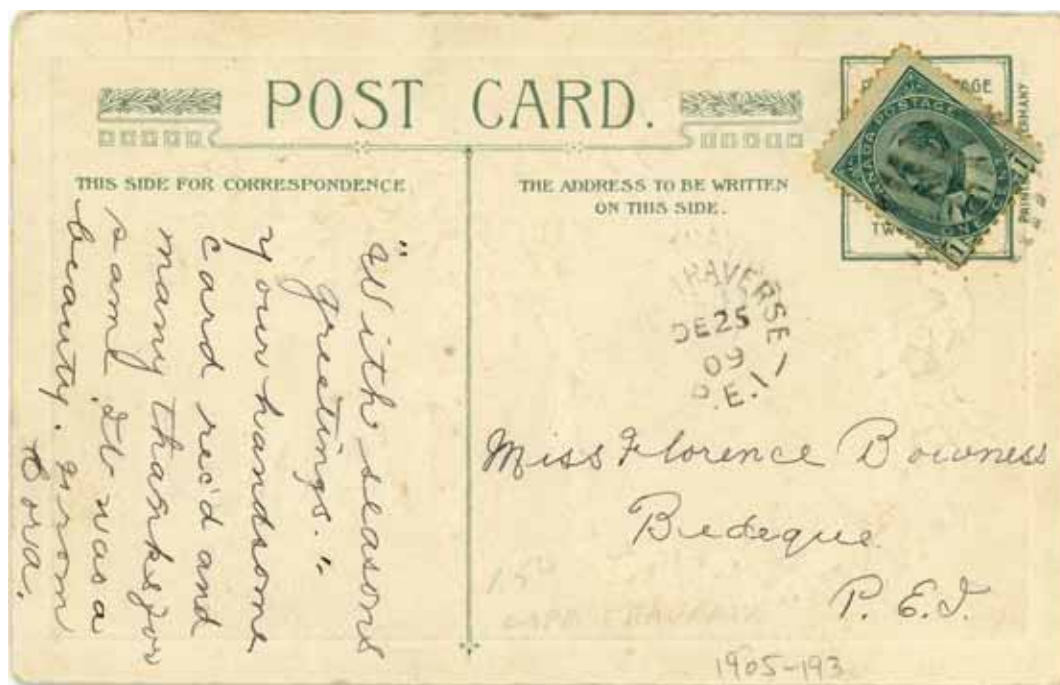 POST CARD.
THIS SIDE FOR CORRESPONDENCE
"With seasons
greetings."
your handsome
card rec'd and
many thanks for
same It was a
beauty. from
Cora.
THE ADDRESS TO BE WRITTEN
ON THIS SIDE.
CANADA POSTAGE
ONE CENT
1 1
TRAVERSE
DE 25
09
P.E.I
Miss Florence Bowness
Bedeque
P. E. I.
15¢
CAPE TRAVERSE
1905-193